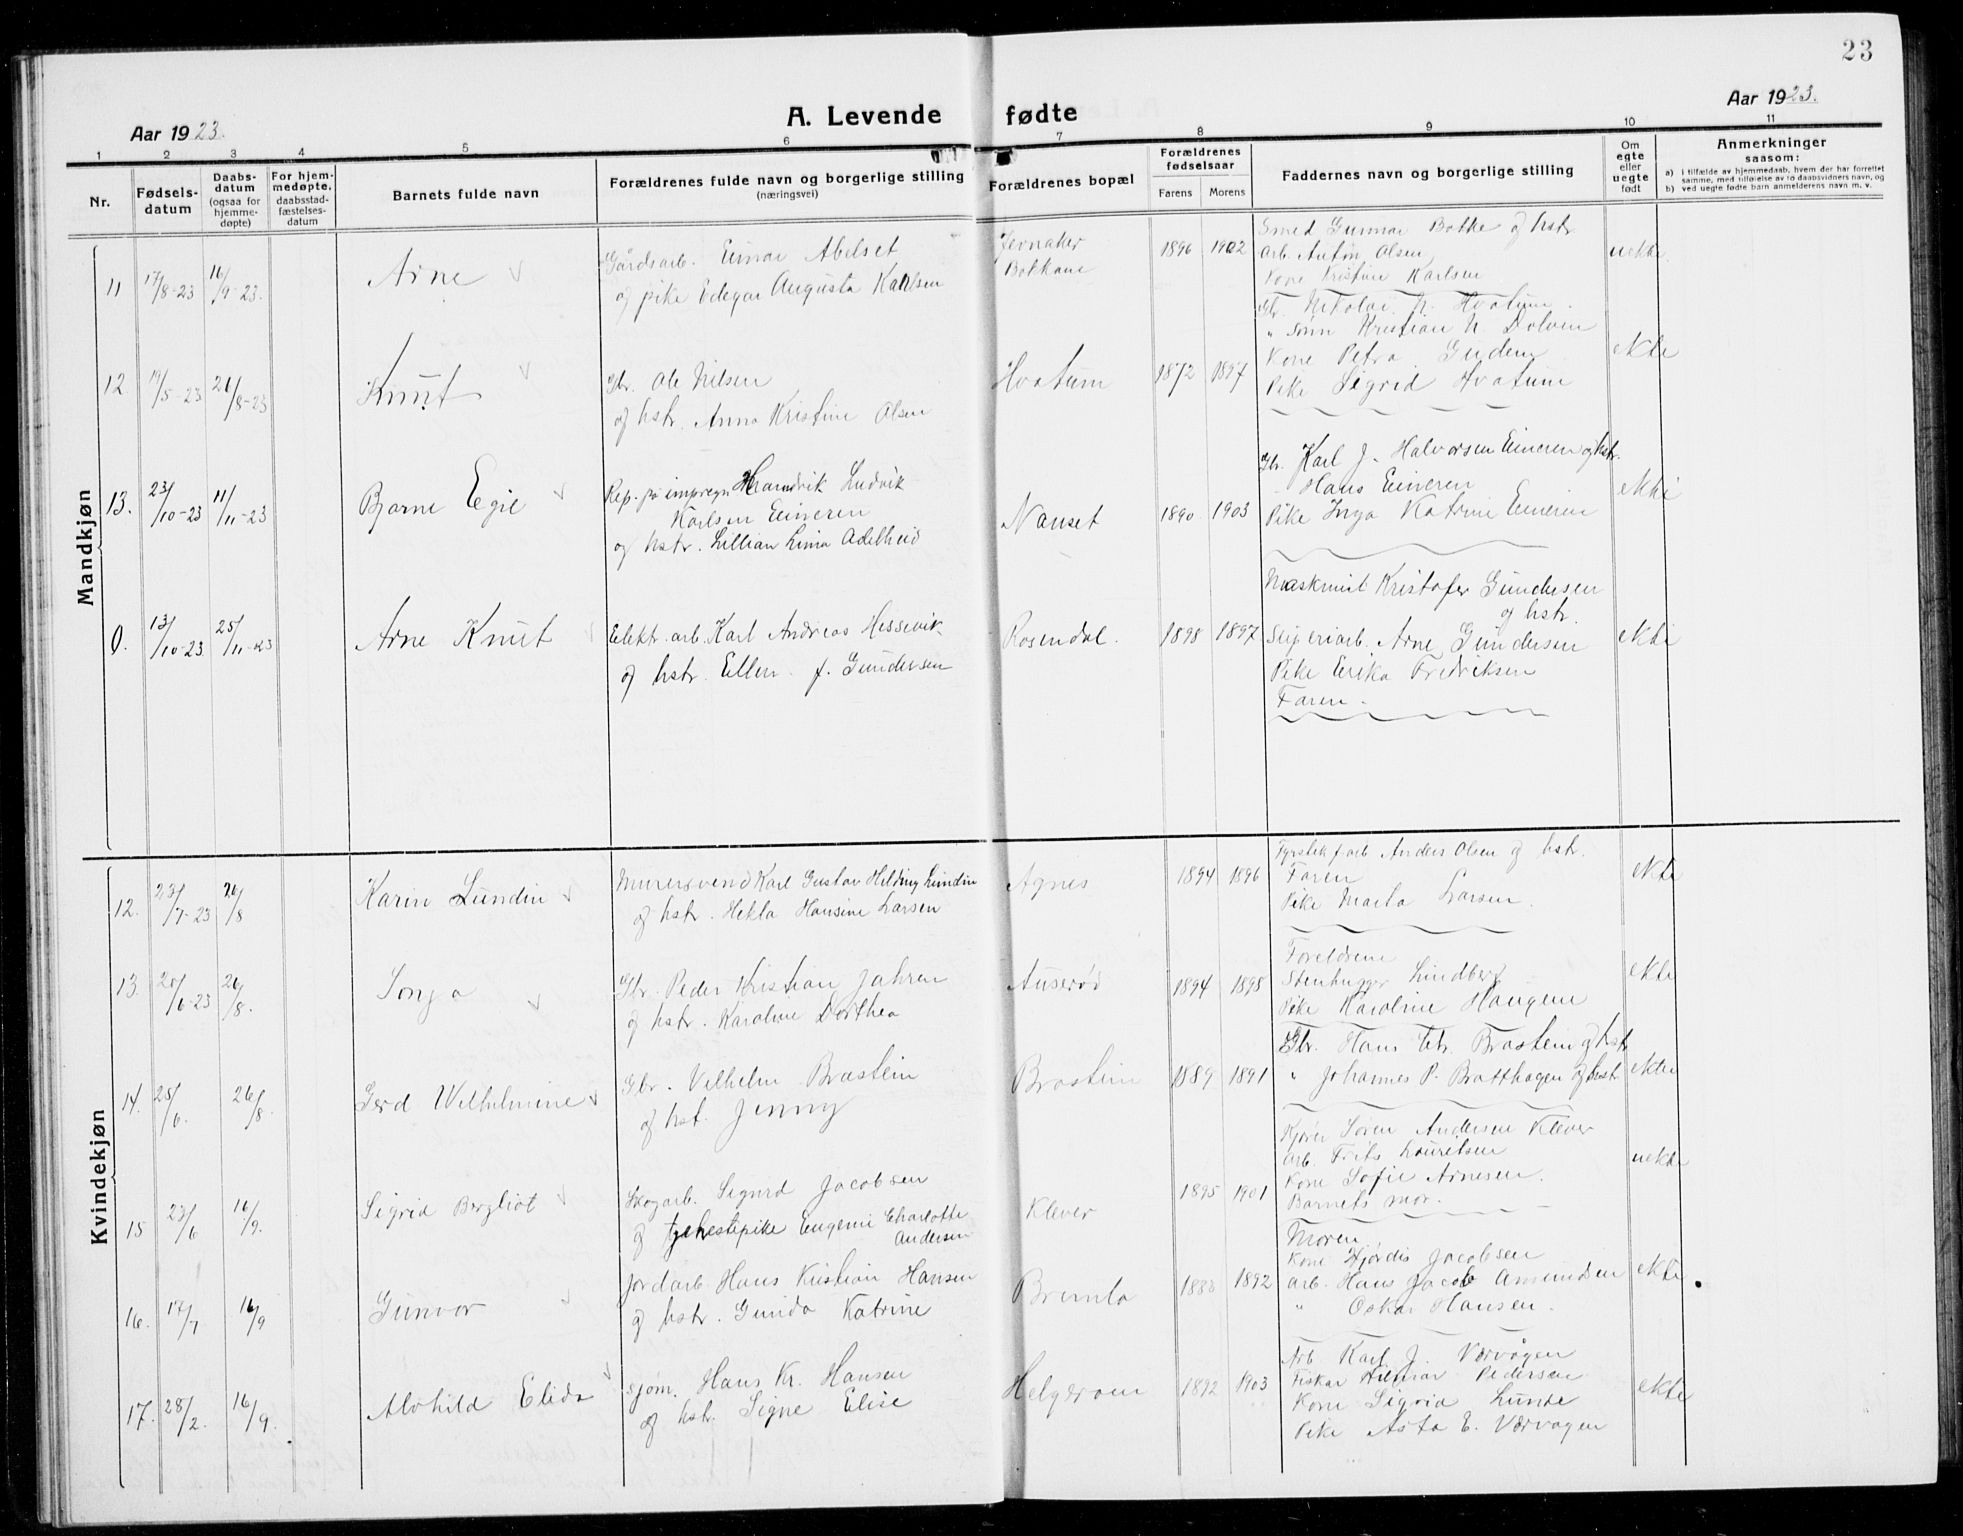 23
Aar 1923.
A. Levende fødte
Aar 1923.
1 2 3 4 5 6 7 8 9 10 11
Nr.
Fødsels-
datum
Daabs-
datum
(ogsaa for
hjemme-
døpte)
For hjem-
medøpte,
daabsstad-
fæstelses-
datum
Barnets fulde navn
Forældrenes fulde navn og borgerlige stilling
(næringsvei)
Forældrenes bopæl
Forældrenes
fødselsaar
Farens Morens
Faddernes navn og borgerlige stilling
Om
egte
eller
uegte
født
Anmerkninger
saasom:
a) i tilfælde av hjemmedaab, hvem der har forrettet
samme, med tilføielse av to daabsvidners navn, og
b) ved uegte fødte barn anmelderens navn m. v.
Mandkjøn
11 17/8-23 16/9-23. Arne
Gårdsarb. Einar Abelset
og pike Edegar Augusta Karlsen
Jernaker
Bokkane
1896 1902
Smed Gunnar Bakke og hstr
arb. Anton Olsen
Kone Kristine Karlsen
uekte.
12. 19/5-23 26/8-23 Knut
Gbr. Ole Nilsen
og hstr. Anna Kristine Olsen
Hvatum
1872 1897
Gbr. Nikolai N. Hvatum.
" sønn Kristian N. Dolven
Kone Petra Gudem
Pike Sigrid Hvatum
ekte
13. 23/10-23 11/11-23 Bjarne Egil
Rep. på impregn. Ludvik
Karlsen Eineren
og hstr. Lillian Lima Adelheid
Nanset
1890 1903
Gbr. Karl J. Halvorsen Eineren og hstr.
Hans Eineren
Pike Inga Katrine Eineren
ekte
0. 13/10-23 25/11-23 Arne Knut
Elektr. arb. Karl Andreas Hessevik
og hstr. Ellen f. Gundersen
Rosendal.
1898 1897
Maskmist Kristofer Gundersen
og hstr.
Sliperiarb. Arne Gundersen
Pike Erika Fredriksen
Faren.
ekte
Kvindekjøn
12. 23/7-23 26/8 Karin Lundin
Murersvend Karl Gustav Hilding Lundin
og hstr. Hekla Hansine Larsen
Agnes
1894 1896
Fyrstikf. arb Anders Olsen og hstr.
Faren
Pike Marta Larsen.
ekte
13. 20/6-23 26/8. Sonja
Gbr. Peder Kristian Jahren
og hstr. Karoline Dorthea
Auserød
1894 1898
Foreldrene
Stenhugger Lindberg
Pike Karoline Haugene
ekte
14. 25/6. 26/8. Gerd Wilhelmine
Gbr. Vilhelm Brastein
og hst. Jenny
Brastein
1889 1891
Gbr. Hans Chr. Brastein og hstr
" Johannes P. Bratthagen og hustr
ekte
15 23/6 16/9. Sigrid Bergliot
Skogarb. Sigurd Jacobsen
og tjenestepike Eugenie Charlotte
Andersen
Klever
1895 1901
Kjører Søren Andersen Klever
arb. Frits Lauritsen
Kone Sofie Arnesen.
Barnets mor.
uekte
16. 17/7 16/9 Gunvor
Jordarb. Hans Kristian Hansen
og hstr. Gunda Katrine
Bremla
1888 1892
Moren
Kone Hjørdis Jacobsen
arb. Hans Jacob Amundsen
" Oskar Hansen.
ekte
17. 28/2. 16/9. Alvhild Elida
sjøm. Hans Kr. Hansen
og hstr. Signe Elise
Helgeroa
1892 1903
Arb. Karl J. Værvågen
Fisker Hilmar Pedersen
Kone Sigrid Lunde
Pike Asta E. Værvagen
ekte